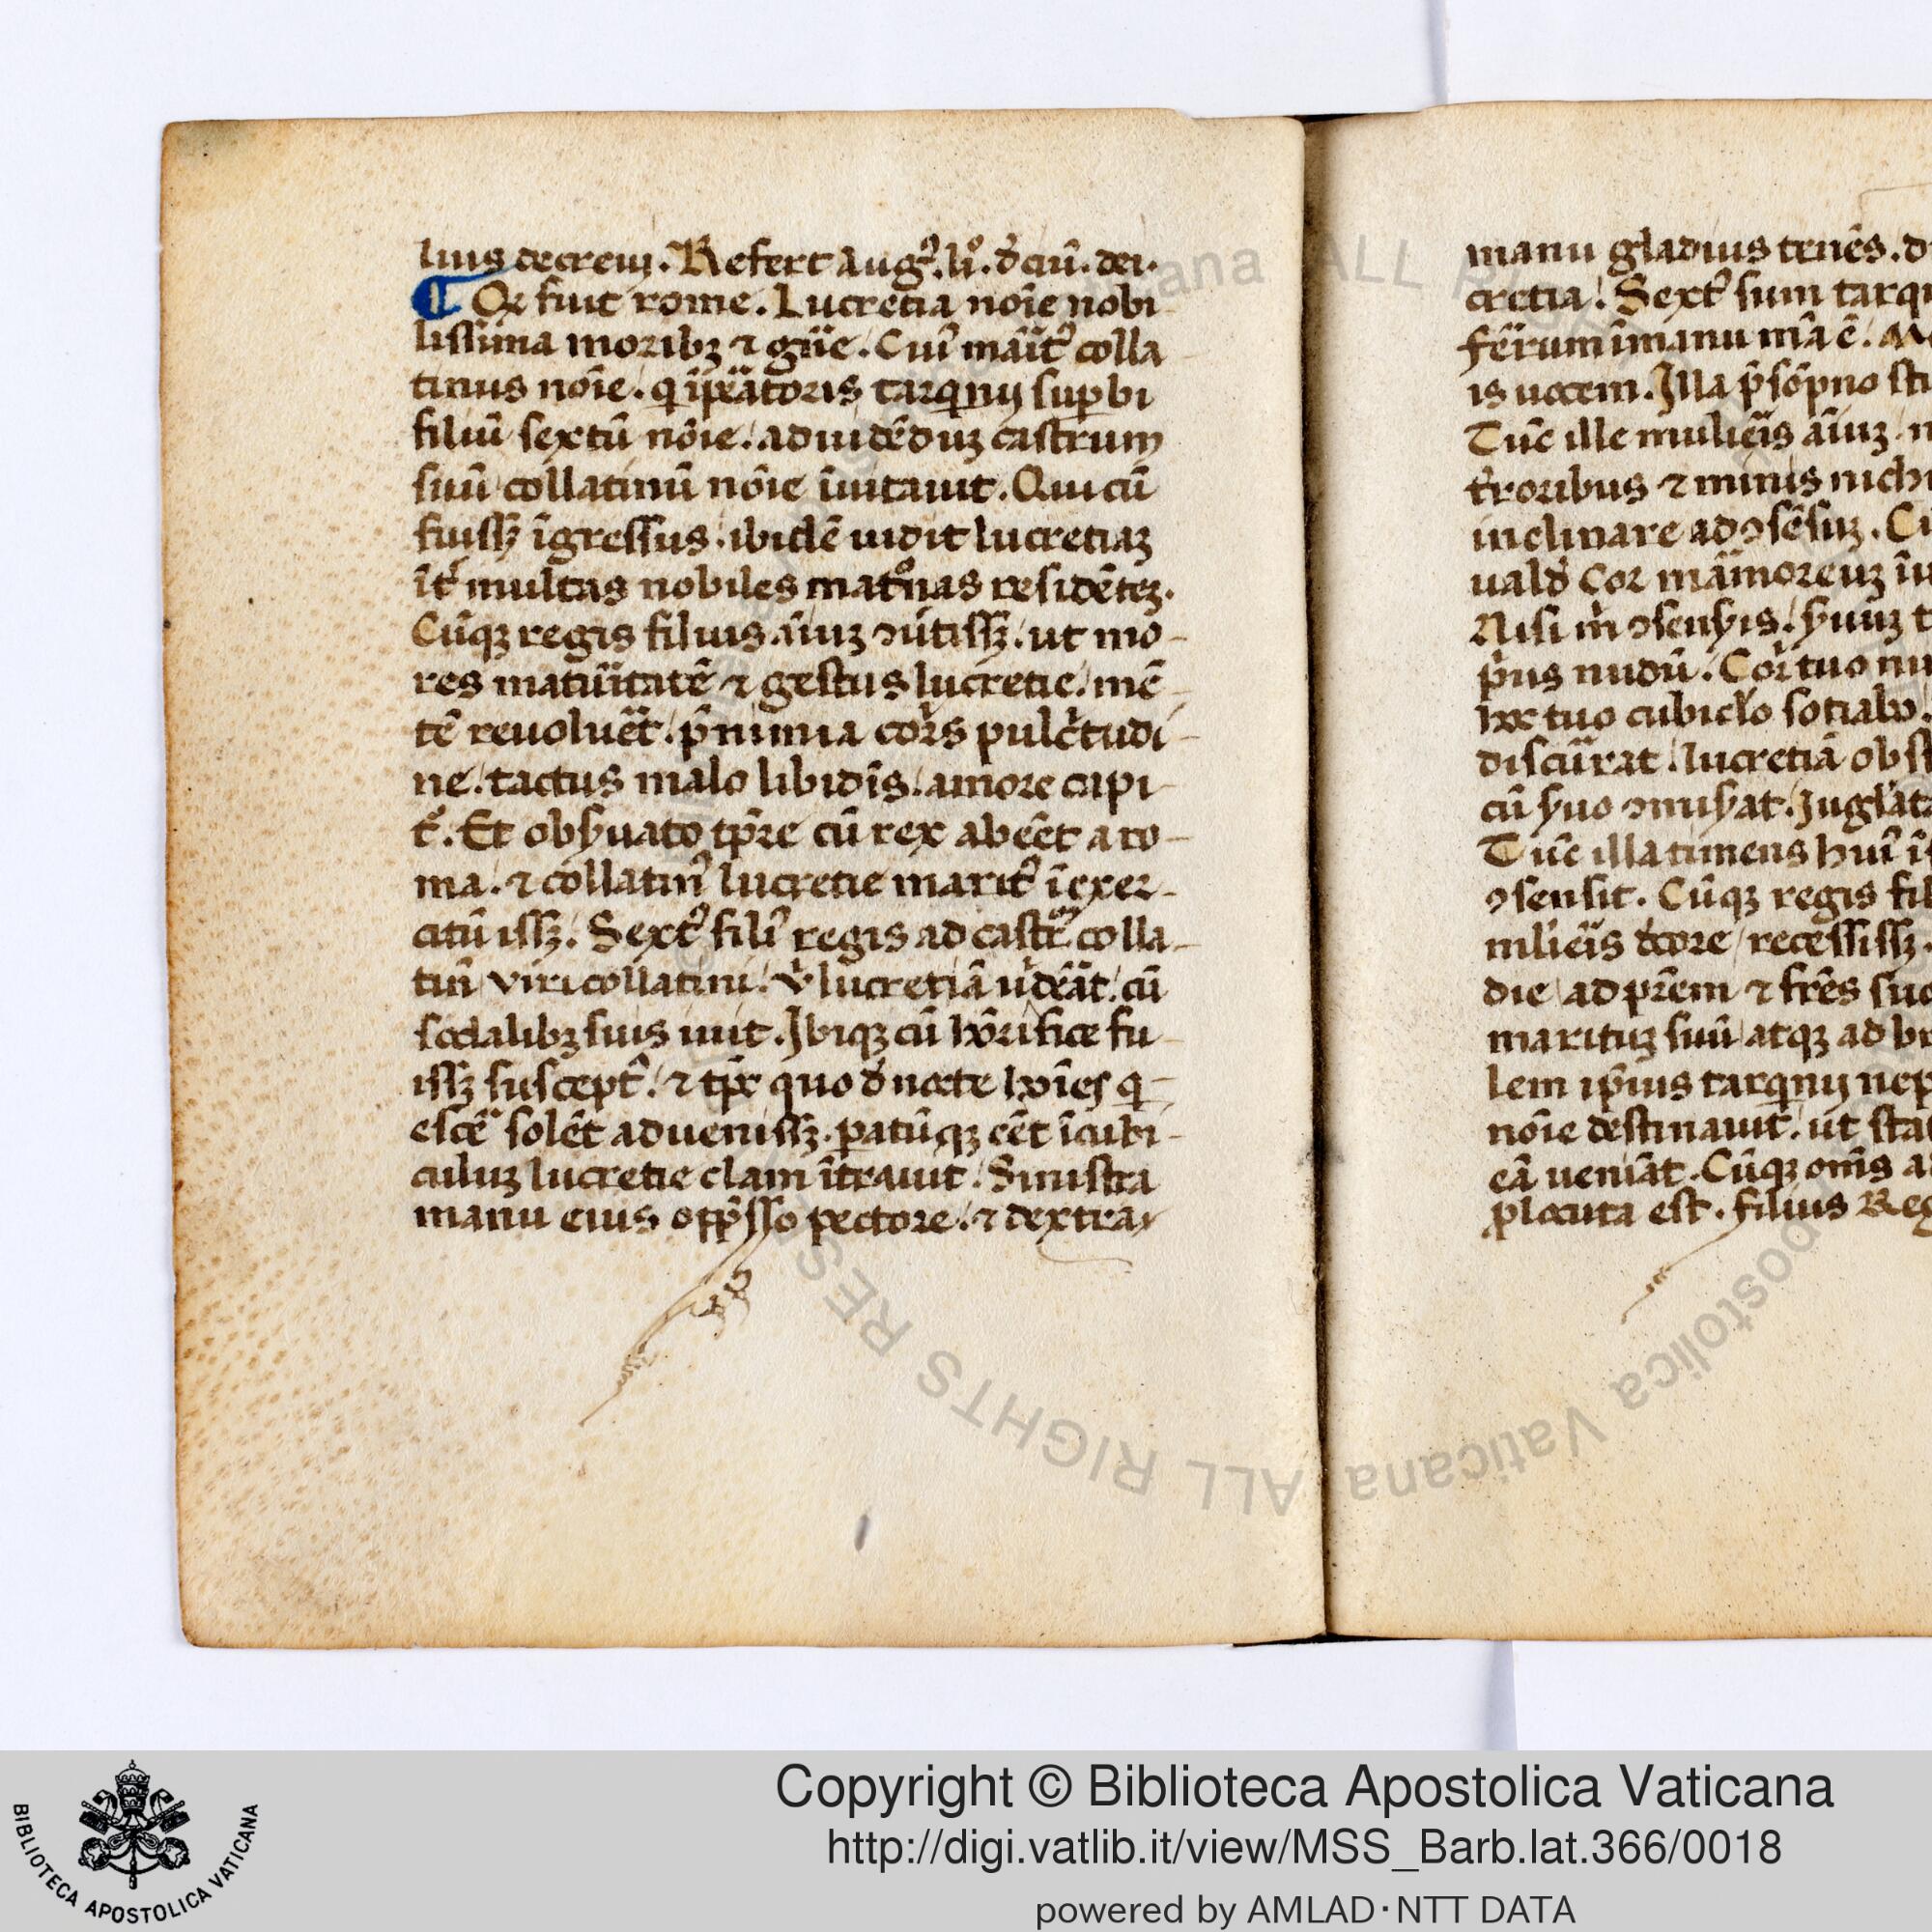 lius decreuj. Refert Augꝰ. liº. đ ciũ. dei.
¶ Qꝛ fuit rome. Lucretia noĩe nobi
lissima moribꝫ ⁊ gñe. Cuiꝰ mãitꝰ colla
tinus noĩe. q ĩpãtoris tarqnij suꝑbi
filiũ sextũ nõie. ad uidẽduꝫ castrum
suũ collatinũ nõie ĩuitauit. Qui cũ
fuissꝫ ĩgressus. ibidẽ uidit lucretiaꝫ
ĩtˀ multas nobiles matºnas residẽteꝫ.
Cũqꝫ regis filius aĩuꝫ ꝯũtissꝫ. ut mo-
res matũitatẽ ⁊ gestus lucretie. mẽ-
tẽ reuoluẽt. p̃ nimia corꝑs pulcˀtudi-
ne. tactus malo libidĩs. amore capi-
tˀ. Et obẜuato tp̃re cũ rex abẽẽt a ro-
ma. ⁊ collatinꝰ lucretie maritꝰ ĩ exer-
citũ issꝫ. Sextꝰ filiꝰ regis ad castrum colla-
tinĩ viri collatini. vˀ lucretiã uˀdẽãt. cũ
sodalibꝫ suis iuit. Ibiqꝫ cũ hõrifice fu-
issꝫ susceptꝰ. ⁊ tp̃r quo đ nocte hoĩes q-
escẽ solẽt aduenissꝫ. patũqꝫ cẽt ĩ cubi-
culuꝫ lucretie clam ĩtrauit. Sinistra
manu eius opp̃sso pectore. ⁊ dextra
manu gladius tenẽs. d
cretia. Sextꝰ sum tarqu
fẽrum ĩ manu mĩa ẽ. M
is uocem. Illa p̃ sõpno
Tũc ille muliẽis aĩuꝫ
tˀroribus ⁊ minis nichi
inclinare ad ꝯsẽsuꝫ.
ualđ Cor mãmoreuꝫ
Nisi mˀ ꝯsenẜis. ẜuuꝫ
p̃us nudũ. Corˀ tuo
hoc tuo cubicˀlo sotiabo.
discũrat. lucretiã
cũ ẜuo ꝯmisẜat.
Tũc illa timens huiꝰ
ꝯsensit. Cũqꝫ regis fil
mliẽis đcore recessissꝫ.
die ad prẽm ⁊ frẽs suo
marituꝫ suũ atqꝫ ad
lem ip̃ius tarqnij nep
nõie destinauit. ut stat
eã ueniãt. Cũqꝫ om̃s
ꝓlocuta est. filius Reg
Copyright © Biblioteca Apostolica Vaticana
http://digi.vatlib.it/view/MSS_Barb.lat.366/0018
powered by AMLAD·NTT DATA
BIBLIOTECA APOSTOLICA VATICANA